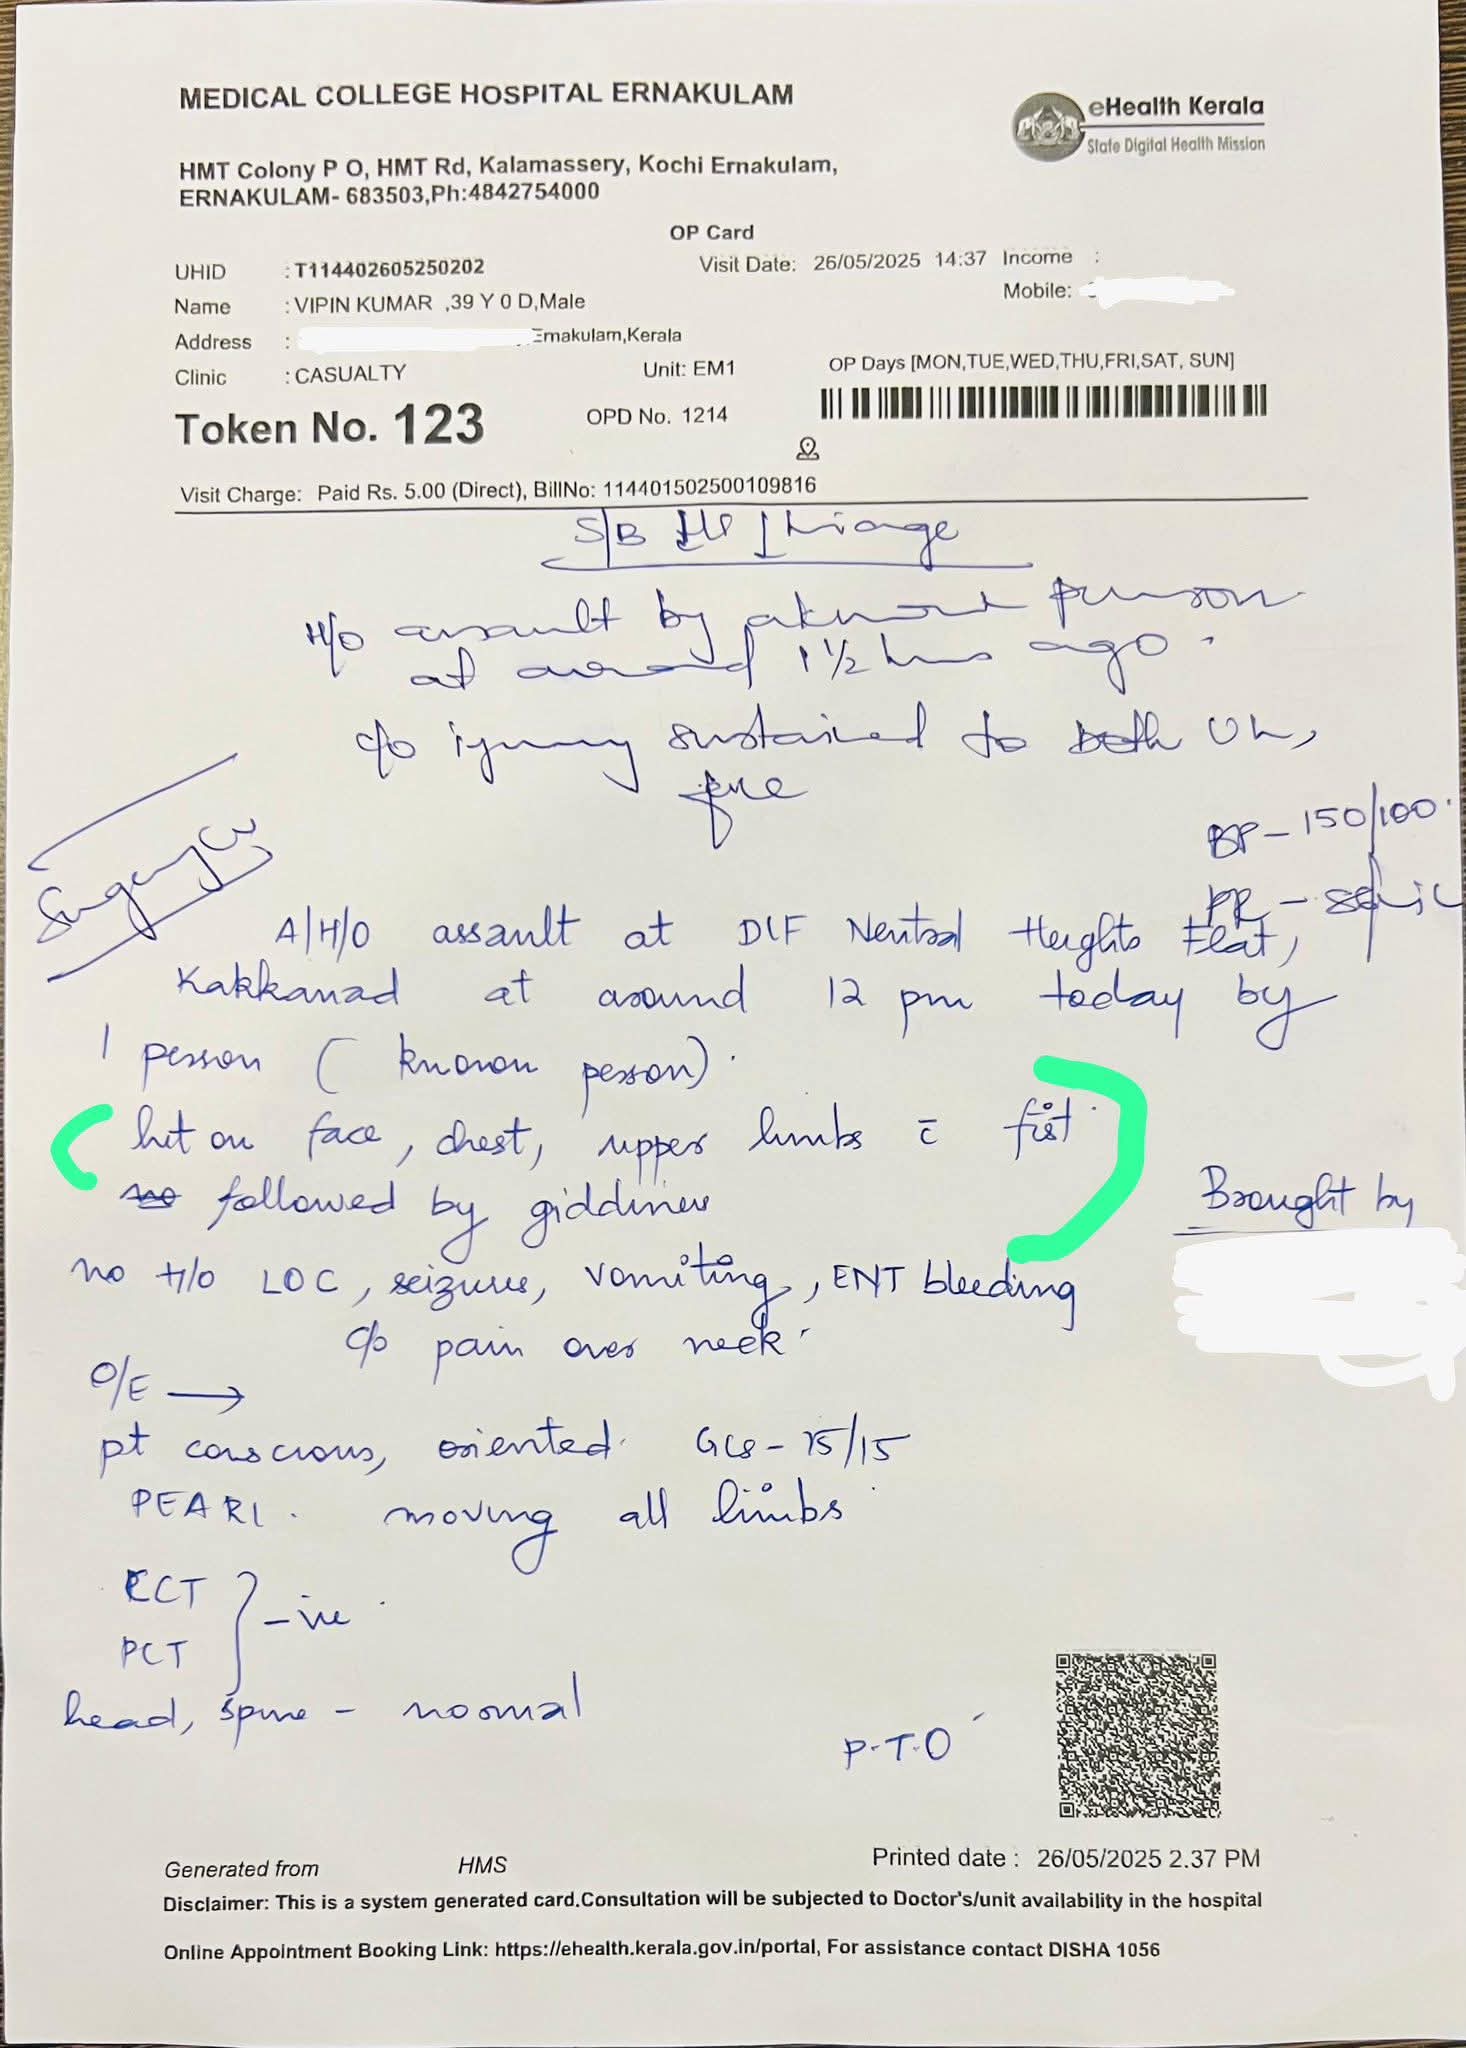 MEDICAL COLLEGE HOSPITAL ERNAKULAM
eHealth Kerala
State Digital Health Mission
HMT Colony P O, HMT Rd, Kalamassery, Kochi Ernakulam,
ERNAKULAM- 683503,Ph:4842754000
OP Card
UHID : T114402605250202
Visit Date: 26/05/2025 14:37 Income :
Name : VIPIN KUMAR ,39 Y 0 D,Male
Mobile:
Address : Ernakulam,Kerala
Clinic : CASUALTY
Unit: EM1
OP Days [MON,TUE,WED,THU,FRI,SAT, SUN]
Token No. 123
OPD No. 1214
Visit Charge: Paid Rs. 5.00 (Direct), BillNo: 114401502500109816
S/B Triage
H/O assault by person
at around 1 1/2 hrs ago.
c/o injury sustained to both UL,
BP - 150/100.
PR -
Surgery
A/H/O assault at DLF Heights Flat,
Kakkanad at around 12 pm today by
1 person (known person).
hit on face, chest, upper limbs c̄ fist.
followed by giddiness
Brought by
no H/O LOC, seizures, vomiting, ENT bleeding
c/o pain over neck.
O/E →
pt conscious, oriented. GCS - 15/15
PEARL. moving all limbs
CCT
PCT } -ive
head, spine - normal
P.T.O
Generated from HMS
Printed date : 26/05/2025 2.37 PM
Disclaimer: This is a system generated card.Consultation will be subjected to Doctor's/unit availability in the hospital
Online Appointment Booking Link: https://ehealth.kerala.gov.in/portal, For assistance contact DISHA 1056